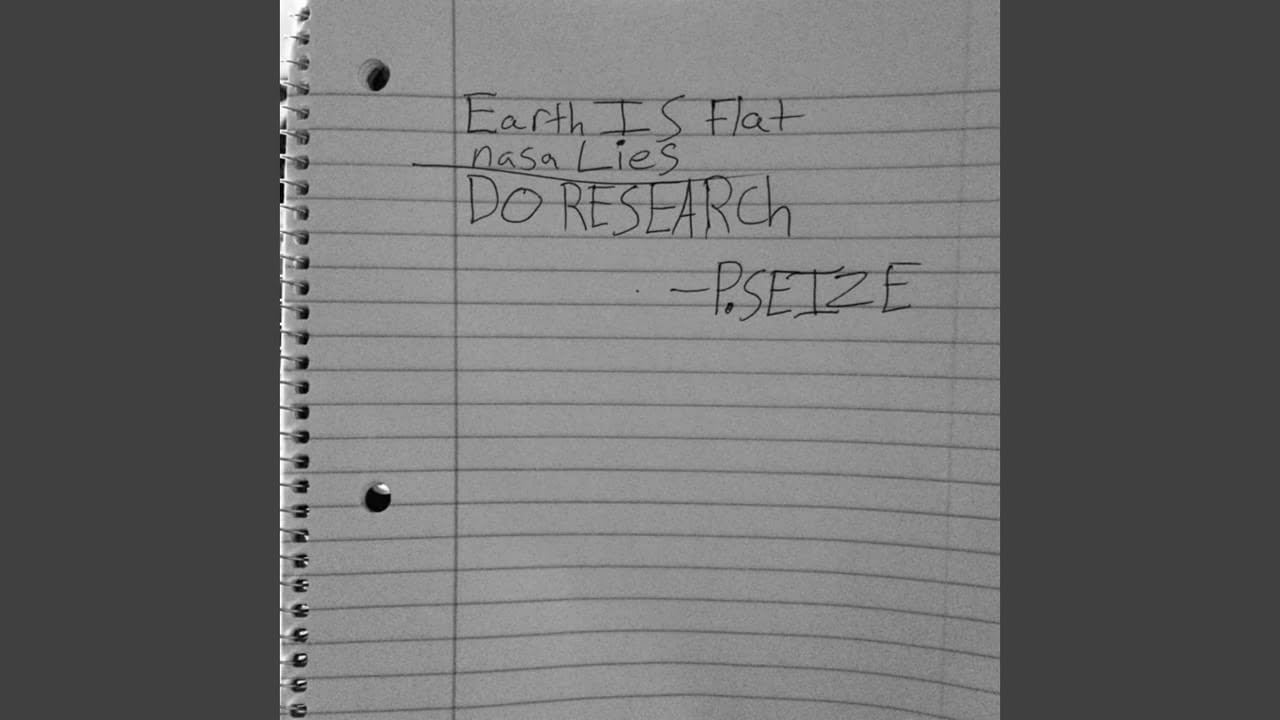 Earth IS Flat
nasa Lies
DO RESEARCh
-P.SEIZE